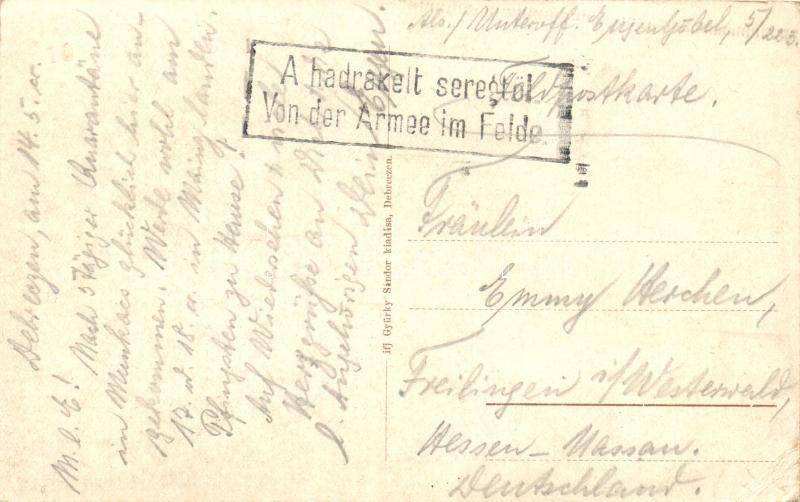 Abs./ Unteroff. Eugen Göbel, 5/223.
A hadrakelt seregtöl
Von der Armee im Felde.
Feldpostkarte.
Fräulein
Emmy Herchen,
Freilingen i/Westerwald,
Hessen-Nassau.
Deutschland.
ifj Gyürky Sándor kiadása, Debreczen.
Debreczen, am 14.5.
M. l. E! Nach 5 tägiger Quarantäne
in Munkacs glücklich hier an-
gekommen. Werde wohl am
17. od. 18. in Mainz landen.
Pfingsten zu Hause!
Auf Wiedersehen!
Herzgrüße an Dich
l. Angehörigen Dein Eugen.